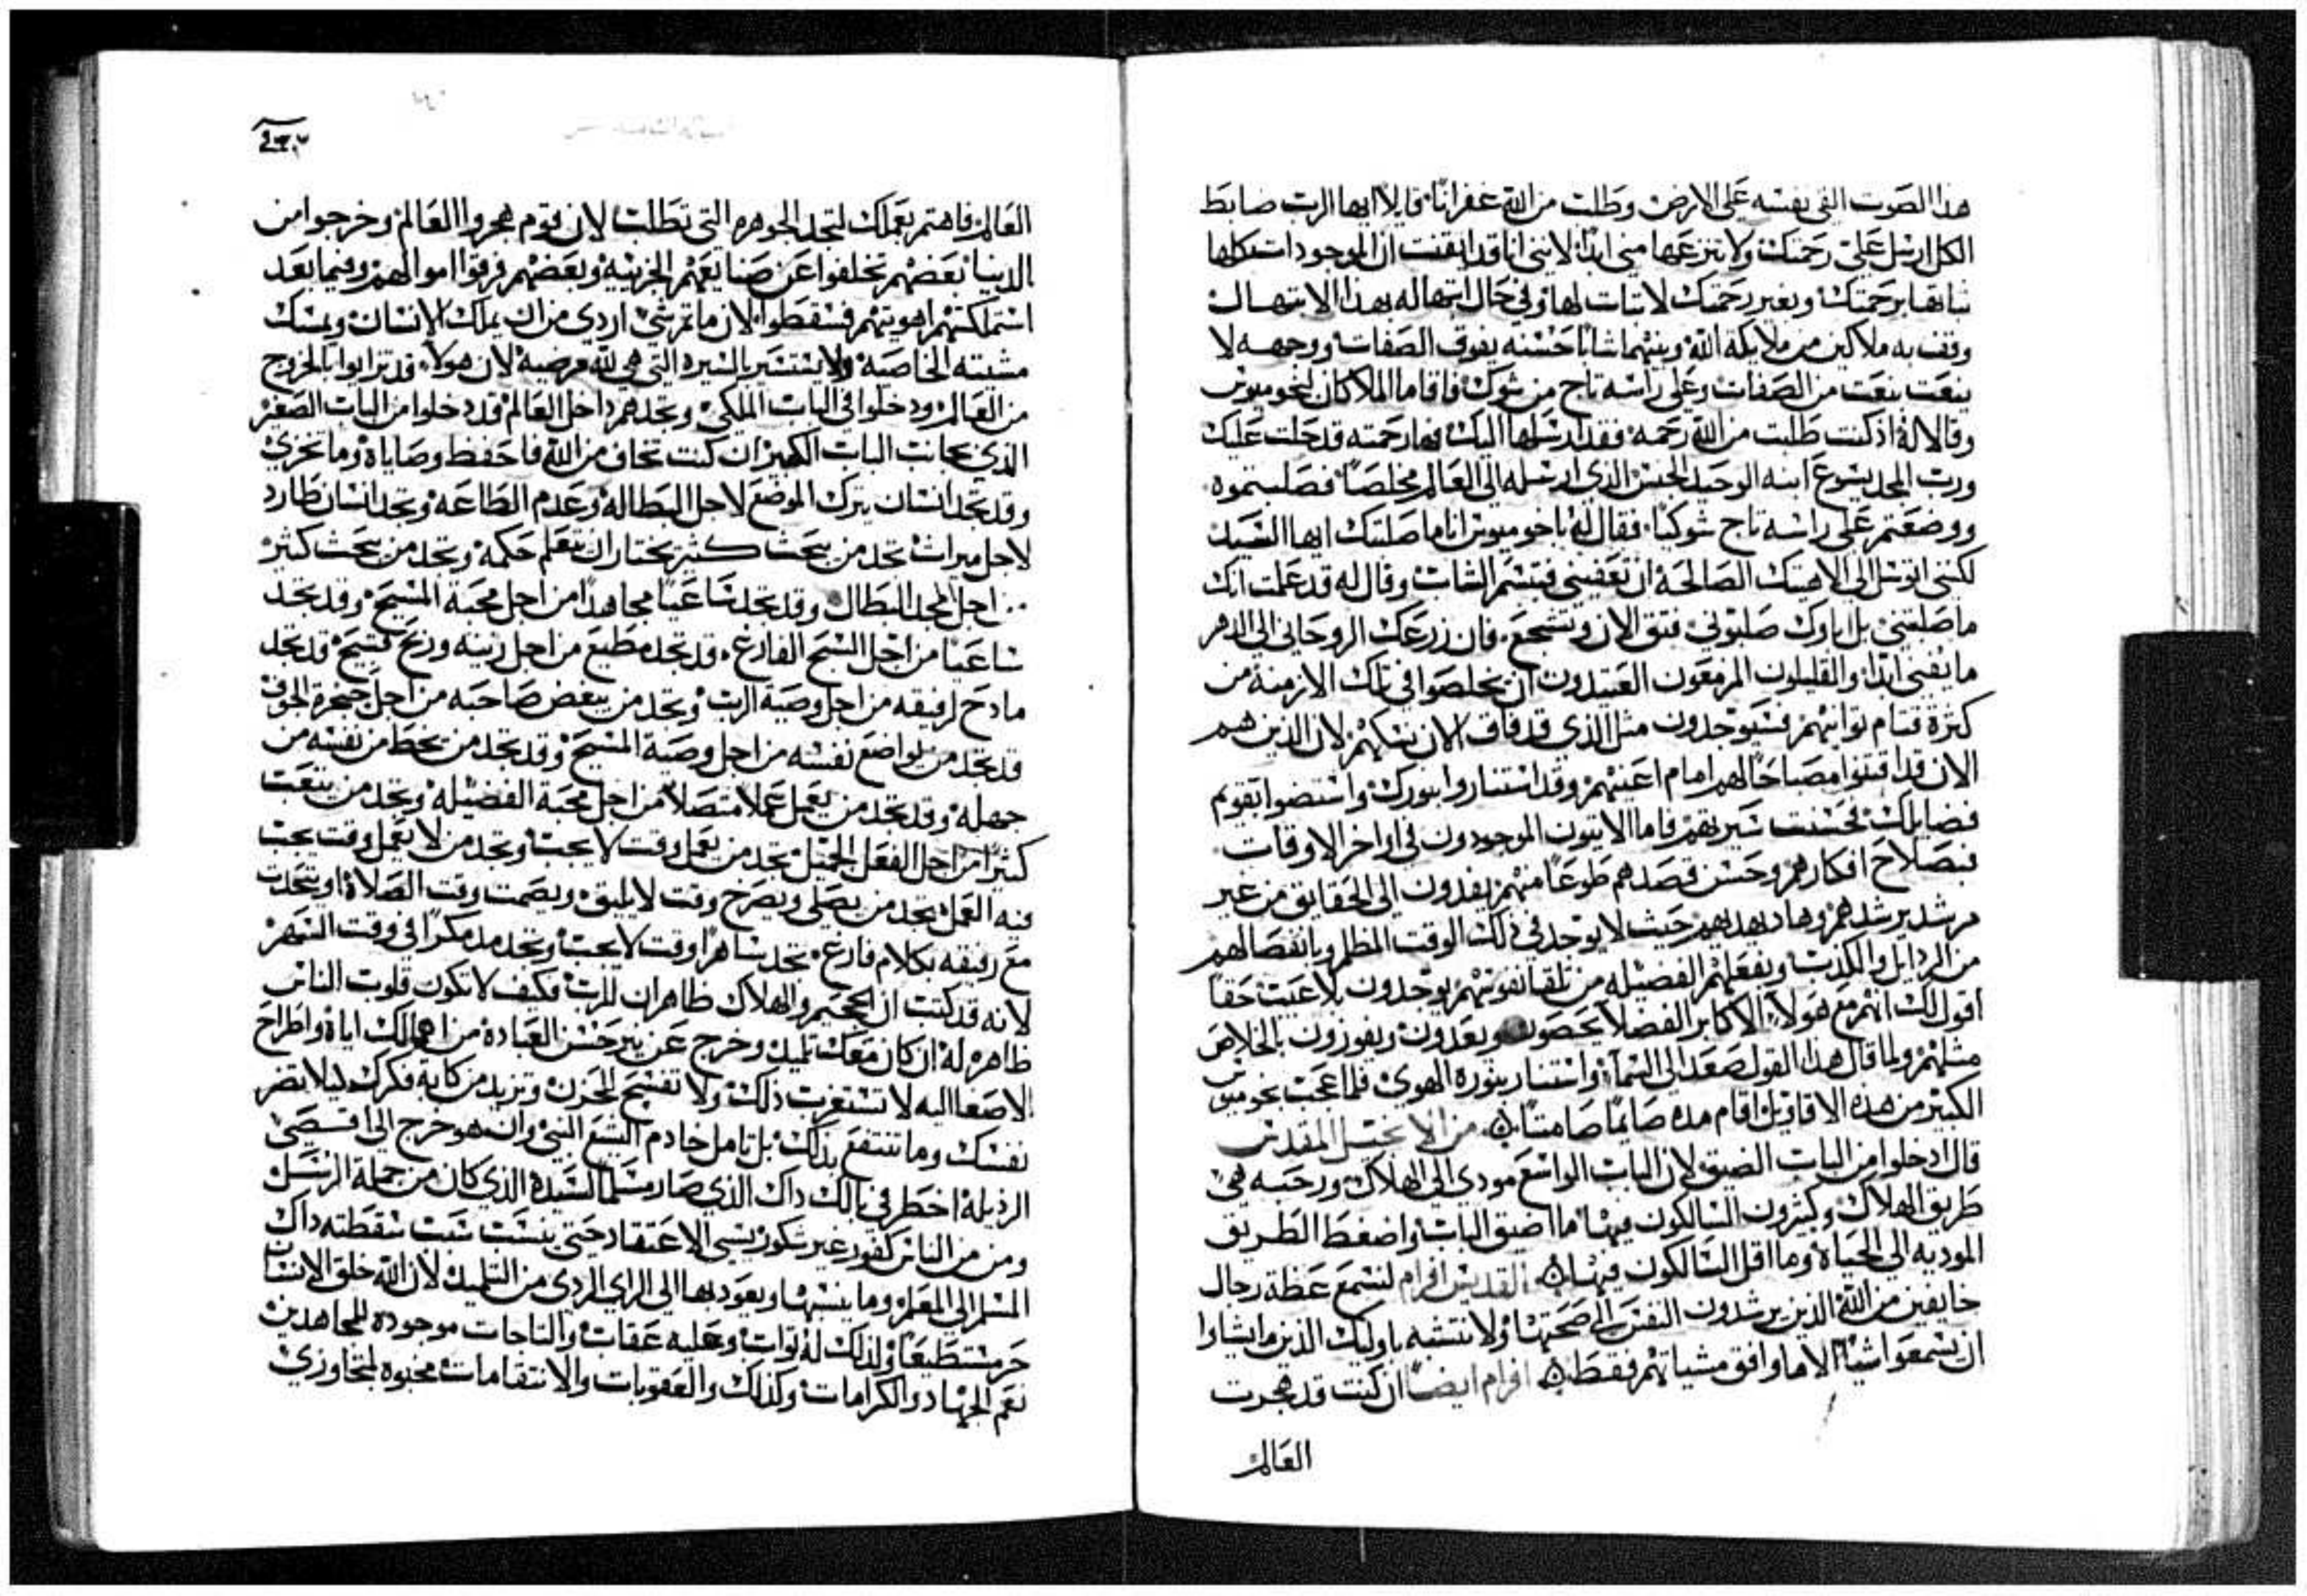 هذا الصوت القى نفسه على الارض وطلب من الله غفرانا قايلا ايها الرب ضابط
الكل ارسل علي رحمتك ولا تنزعها مني ابدا لانني انا قد ايقنت ان الموجودات كلها
ثباتها برحمتك وبغير رحمتك لا ثبات لها وفي حال ابتهاله بهذا الابتهال
وقف به ملاكين من ملايكة الله وبينهما شابا حسنه يفوق الصفات ووجهه لا
ينعت بنعت من الصفات وعلى راسه تاج من شوك فاقاما الملاكان لنحوميوس
وقالا له اذ كنت طلبت من الله رحمه فقد ارسلها اليك فهارحمته قد حلت عليك
ورب المجد يسوع ابنه الوحيد الجنس الذي ارسله الى العالم مخلصا فصلبتموه
ووضعتم على راسه تاج شوكيا فقال له باخوميوس انا ما صلبتك ايها السيد
لكنني اتوسل الى الاهيتك الصالحة ان تعفيني فتبسم الشاب وقال له قد علمت انك
ما صلبتني بل اباوك صلبوني فثق الان وتشجع فان زرعك الروحاني الى الدهر
ما يفنى ابدا والقليلون المزمعون العتيدون ان يخلصوا في تلك الازمنة من
كثرة قتام توانيهم فسيوجدون مثل الذي قد فاق الان نسكهم لان الذين هم
الان قد اقتنوا مصباحا لهم امام اعينهم وقد استناروا بنورك واستضوا بتقويم
فضايلك فحسنت سيرتهم فاما الاتيون الموجودون في اواخر الاوقات
فبصلاح افكارهم وحسن قصدهم طوعا منهم يفدون الى الحقايق من غير
مرشد يرشدهم وهاد يهديهم حيث لا يوجد في ذلك الوقت المظلم وبانفصالهم
من الردايل والكذب وبفعلهم الفضيله من تلقا نفوسهم يوجدون بلا عيب حقا
اقول لك انهم مع هولاء الاكابر الفضلا يحصون ويعدون ويفوزون بالخلاص
مثلهم ولما قال هذا القول صعد الى السما واستنار بنوره الهوى فلما عجب بخوميوس
الكبير من هذه الاقاويل اقام مده صايما صامتا من الانجيل المقدس
قال ادخلوا من الباب الضيق لان الباب الواسع مودي الى الهلاك ورحبه هي
طريق الهلاك وكثيرون السالكون فيها ما اضيق الباب واضغط الطريق
الموديه الى الحياة وما اقل السالكون فيها القديس افرام لنسمع عظة رجال
خايفين من الله الذين يرشدون النفس الى صحتها ولا نتشبه باوليك الذين ما يشاوا
ان يسمعوا شيا الا ما وافق مشياتهم فقط افرام ايضا ان كنت قد هجرت
العالم
العالم فاهتم بعملك لتجد الجوهره التي تطلب لان قوم هجروا العالم وخرجوا من
الدنيا بعضهم تخلفوا عن صنايعهم الحزينه وبعضهم فرقوا اموالهم وفيما بعد
استملكتهم اهويتهم فسقطوا لان ما ثم شي اردى من ان يملك الانسان ويمسك
مشيته الخاصيه ولا يستسير بالسيره التي هي لله مرضيه لان هولاء قد تزايوا بالخروج
من العالم ودخلوا في الباب الملكي وتجدهم داخل العالم قد دخلوا من الباب الصغير
الذي بجانب الباب الكبير ان كنت تخاف من الله فاحفظ وصاياه وما تخزي
وقد تجد انسان يترك الموضع لاجل البطاله وعدم الطاعه وتجد انسان طارد
لاجل ميراث تجد من يبحث كثير يختار ان يتعلم حكمة وتجد من يبحث كثير
من اجل المجد البطال وقد تجد ساعيا مجاهدا من اجل محبة المسيح وقد تجد
ساعيا من اجل السبح الفارغ قد تجد مطيع من اجل زينه وربح قبيح قد تجد
مادح لرفيقه من اجل وصية الرب وتجد من يبغض صاحبه من اجل حنجرة الجوف
قد تجد من يواضع نفسه من اجل وصية المسيح وقد تجد من يحط من نفسه من
جهله وقد تجد من يعمل عملا متصلا من اجل محبة الفضيله وتجد من يتعب
كثيرا من اجل الفعل الجميل تجد من يعمل وقت لا يجب وتجد من لا يعمل وقت يجب
فيه العمل تجد من يصلي ويصرخ وقت لا يليق ويصمت وقت الصلاة او يتحدث
مع رفيقه بكلام فارغ تجد ساهرا وقت لا يجب وتجد مدمكرا في وقت السهر
لانه قد كتب ان الجحيم والهلاك ظاهران للرب فكيف لا تكون قلوب الناس
ظاهره له ان كان معك تلميذ وخرج عن نير حسن العبادة من اهمالك اياه واطراح
الاصغا اليه لا تستغرب ذلك ولا تفسح الحزن وتزيد من كابة فكرك ليلا تضر
نفسك وما تنتفع بذلك بل تامل خادم اليشع النبي وان هو خرج الى اقصى
الرذيله اخطر في بالك داك الذي صار مسلما لسيده الذي كان من جملة الرسل
ومن من الناس كفور غير شكور يسي الاعتقاد حتى ينسب سبب سقطته داك
المسلم الى المعلم وما ينسبها ويعود بها الى الراي الردي من التلميذ لان الله خلق الانسان
حر مستطيعا ولذلك له ثواب وعليه عقاب والتاجات موجوده للمجاهدين
نعم الجهاد والكرامات وكذلك والعقوبات والانتقامات مخبوه لمتجاوزي